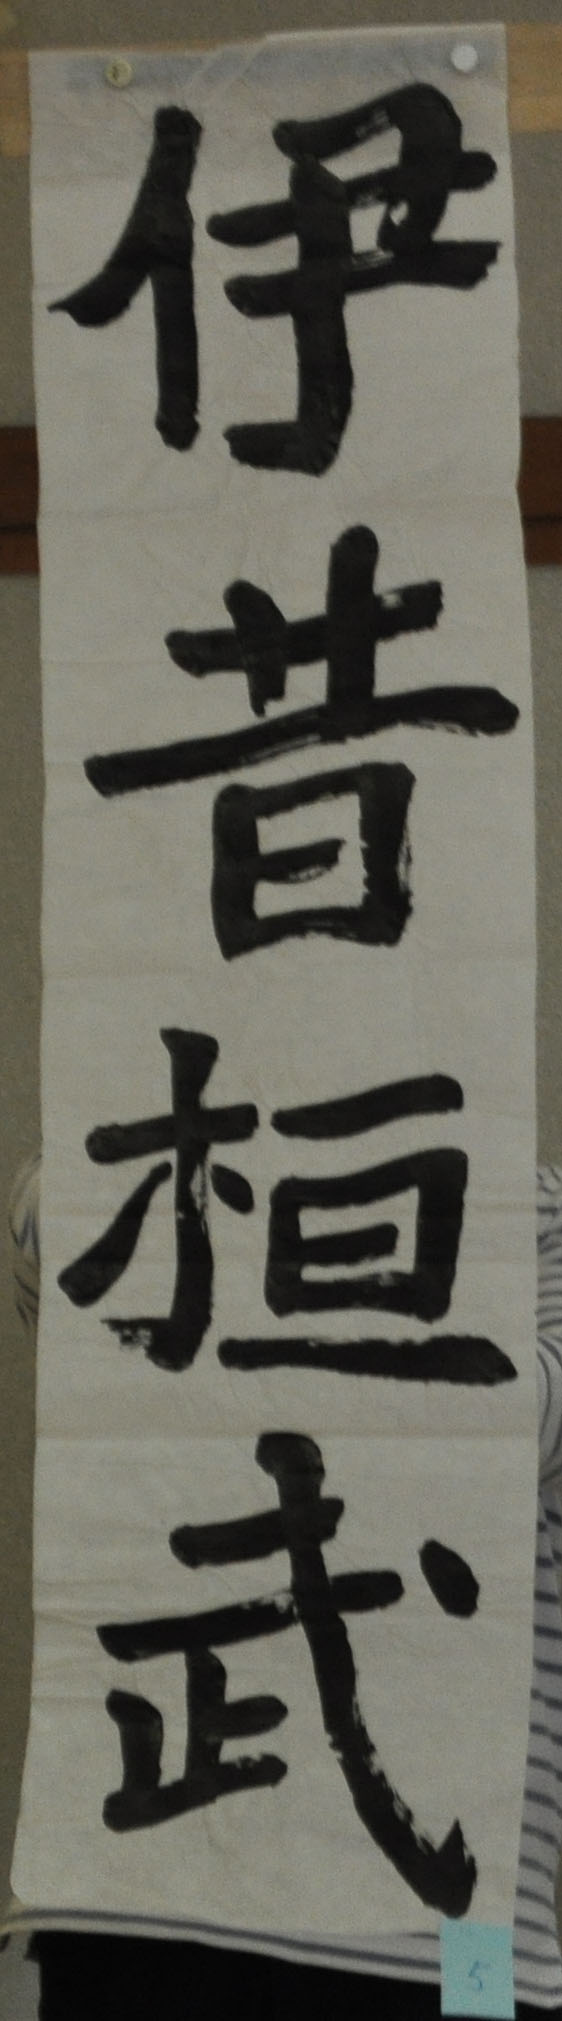 伊昔桓武
5